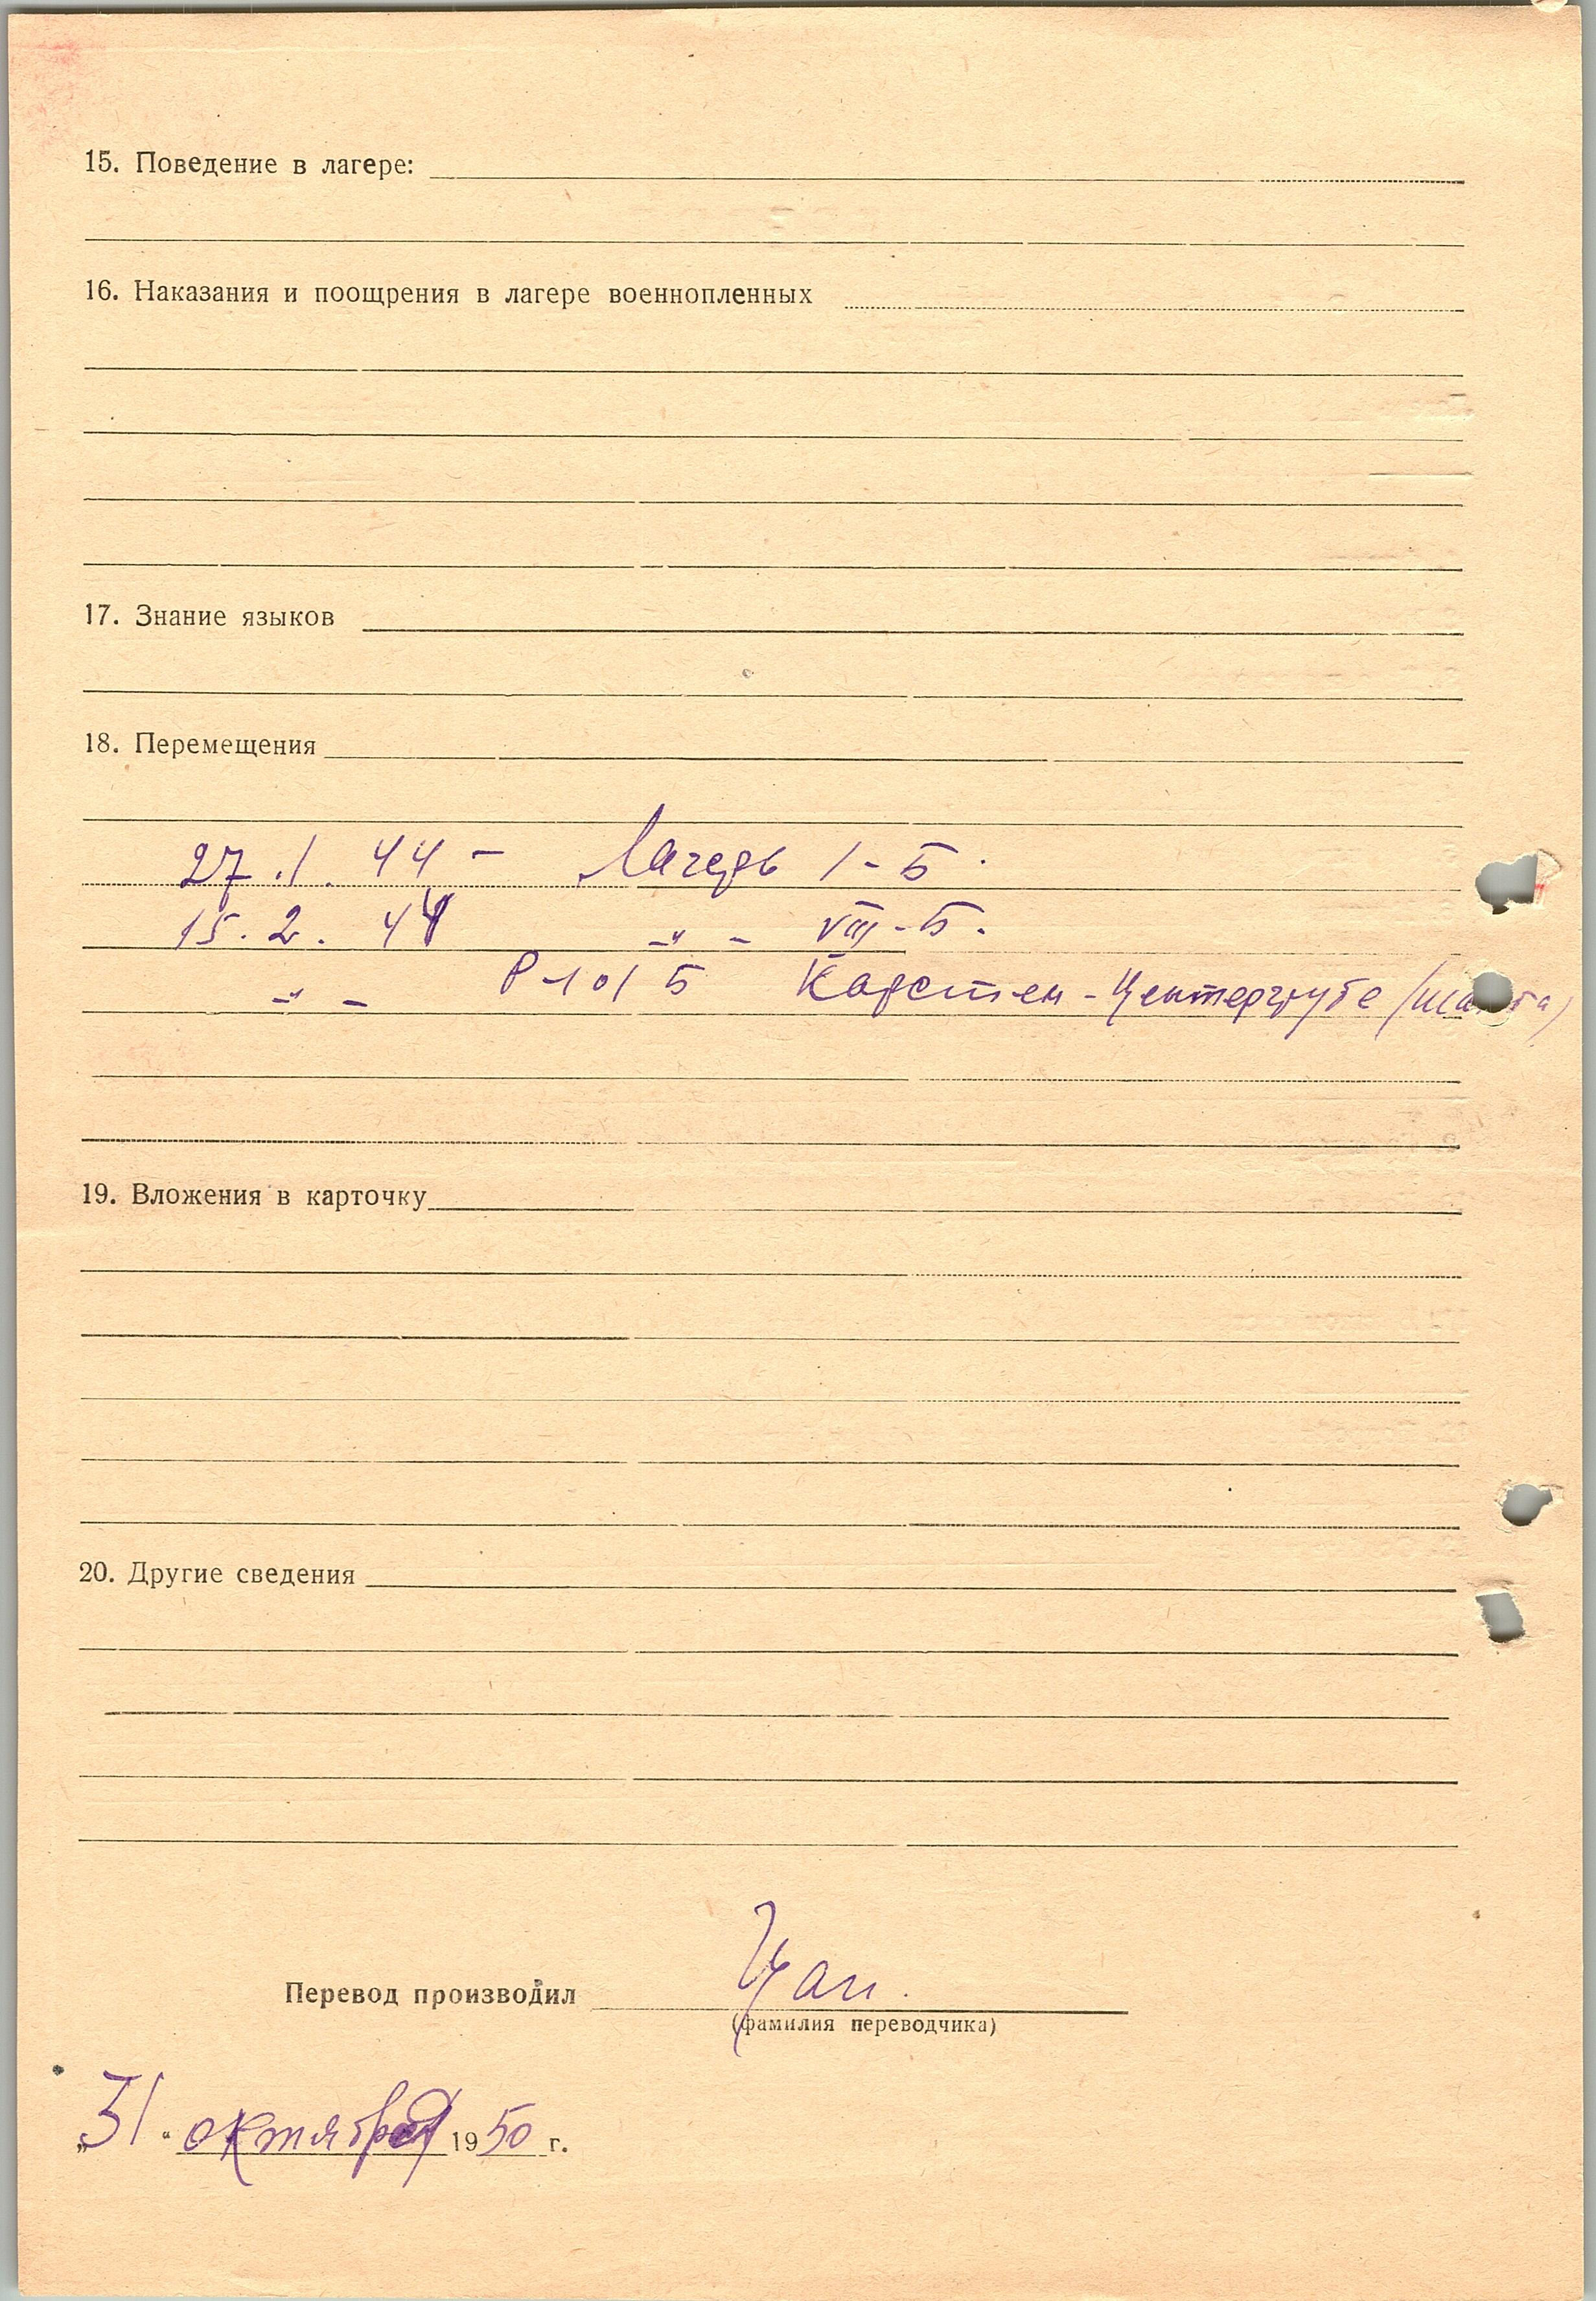 15. Поведение в лагере:
16. Наказания и поощрения в лагере военнопленных
17. Знание языков
18. Перемещения
27.1.44 – Лагерь I-Б.
15.2.44 -"- VIII-Б.
-"- Р-101 Б Карстен-Центергрубе (шахта)
19. Вложения в карточку
20. Другие сведения
Перевод производил Цап.
(фамилия переводчика)
„31“ октября 1950 г.